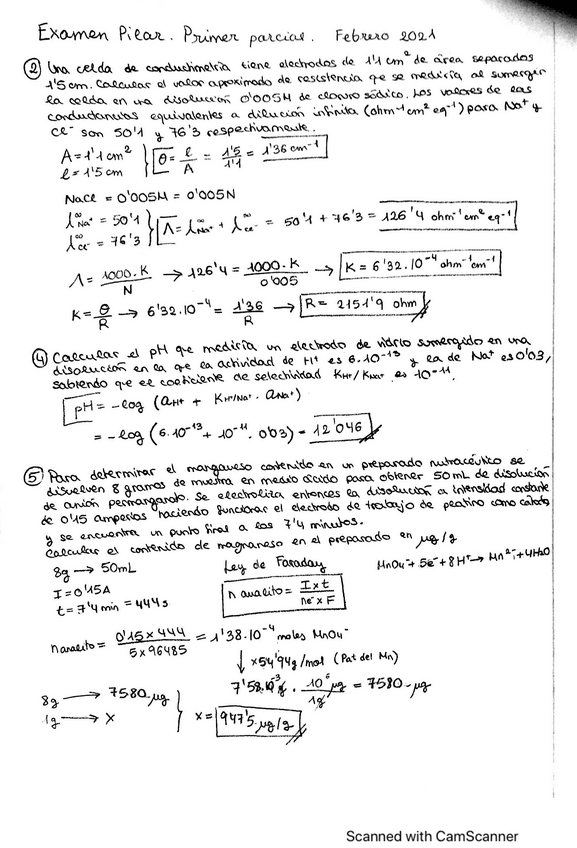 Examen Pilar. Primer parcial. Febrero 2021
② Una celda de conductimetría tiene electrodos de 1'1 cm² de área separados
1'5 cm. Calcular el valor aproximado de resistencia qe se mediría al sumergir
la celda en una disolución 0'005M de cloruro sódico. Los valores de las
conductancias equivalentes a dilución infinita (ohm⁻¹cm²eq⁻¹) para Na⁺ y
Cl⁻ son 50'1 y 76'3 respectivamente.
A = 1'1 cm²
l = 1'5 cm } θ = l/A = 1'5/1'1 = 1'36 cm⁻¹
NaCl = 0'005M = 0'005N
λ∞Na⁺ = 50'1
λ∞Cl⁻ = 76'3 } Λ = λ∞Na⁺ + λ∞Cl⁻ = 50'1 + 76'3 = 126'4 ohm⁻¹cm²eq⁻¹
Λ = 1000·K/N → 126'4 = 1000·K/0'005 → K = 6'32·10⁻⁴ ohm⁻¹cm⁻¹
K = θ/R → 6'32·10⁻⁴ = 1'36/R → R = 2151'9 ohm
④ Calcular el pH que mediría un electrodo de vidrio sumergido en una
disolución en la qe la actividad de H⁺ es 6·10⁻¹³ y la de Na⁺ es 0'03,
sabiendo que el coeficiente de selectividad KH⁺/KNa⁺ es 10⁻¹¹.
pH = -log (aH⁺ + KH⁺/Na⁺ · aNa⁺)
= -log (6·10⁻¹³ + 10⁻¹¹ · 0'03) = 12'046
⑤ Para determinar el manganeso contenido en un preparado nutracéutico se
disuelven 8 gramos de muestra en medio ácido para obtener 50 mL de disolución
de anión permanganato. Se electroliza entonces la disolución a intensidad constante
de 0'15 amperios haciendo funcionar el electrodo de trabajo de platino como cátodo
y se encuentra un punto final a los 7'4 minutos.
Calcular el contenido de magnaneso en el preparado en µg/g
8g → 50mL
Ley de Faraday
MnO₄⁻ + 5e⁻ + 8H⁺ → Mn²⁺ + 4H₂O
I = 0'15A
t = 7'4 min = 444s
n analito = I x t / ne⁻ x F
n analito = 0'15 x 444 / 5 x 96485 = 1'38·10⁻⁴ moles MnO₄⁻
↓ x 54'94 g/mol (Pat del Mn)
7'58·10⁻³ g · 10⁶ µg / 1g = 7580 µg
8g → 7580 µg
1g → x } x = 947'5 µg/g
Scanned with CamScanner